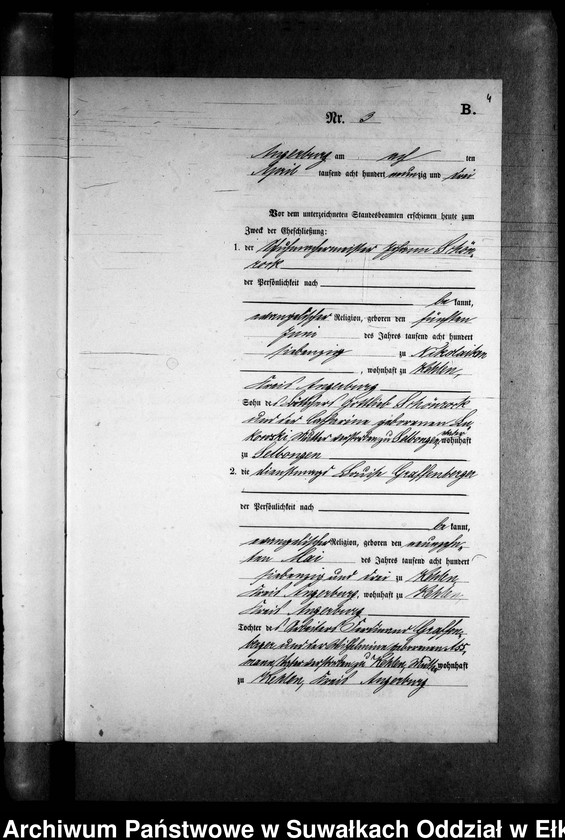 4
B.
Nr. 3
Angerburg am acht ten
April tausend acht hundert neunzig und drei
Vor dem unterzeichneten Standesbeamten erschienen heute zum
Zweck der Eheschließung:
1. der Schuhmachermeister Johann Schön-
rock
der Persönlichkeit nach
be kannt,
evangelischer Religion, geboren den fünften
Juni des Jahres tausend acht hundert
siebenzig zu Nikolaiken
, wohnhaft zu Kehlen,
Kreis Angerburg
Sohn des Gottlieb Schönrock
und der Catharine geborenen
Mutter verstorben zu Selbongen, Vater wohnhaft
zu Selbongen
2. die Dienstmagd Louise Graffenberger
der Persönlichkeit nach
be kannt,
evangelischer Religion, geboren den neunzehn-
ten Mai des Jahres tausend acht hundert
siebenzig und drei zu Kehlen,
Kreis Angerburg, wohnhaft zu Kehlen,
Kreis Angerburg
Tochter des Arbeiters Ferdinand Graffen-
berger und der Wilhelmine geborenen Ass-
mann, Vater verstorben zu Kehlen, Mutter wohnhaft
zu Kehlen, Kreis Angerburg
Archiwum Państwowe w Suwałkach Oddział w Ełk